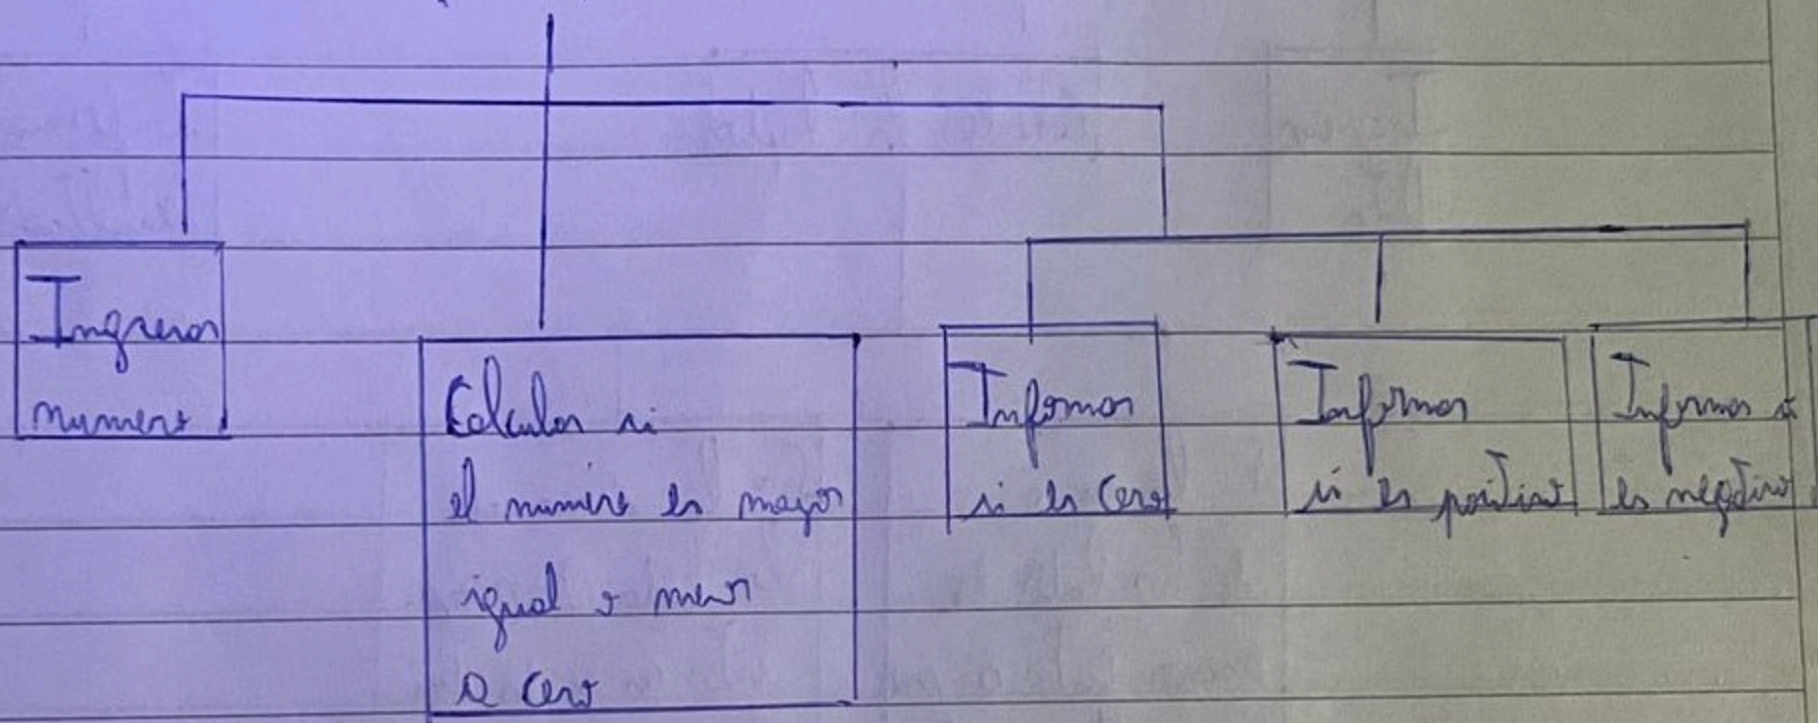 Ingresar
numero
Calcular si
el numero es mayor
igual o menor
a cero
Informar
si es cero
Informar
si es positivo
Informar si
es negativo